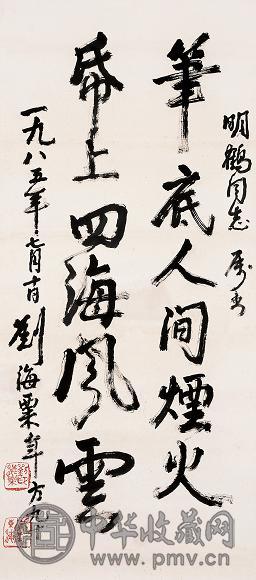 明鹤同志属书
筆底人间煙火
帋上四海風雲
一九八五年七月十日劉海粟年方九十
中华收藏网
www.pmv.cn